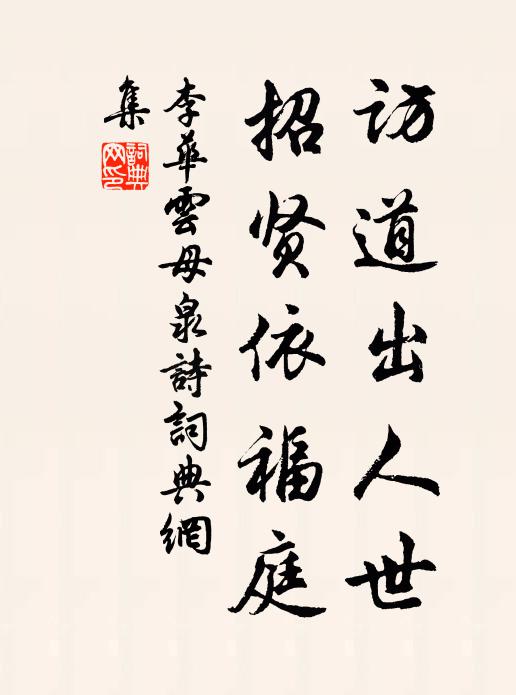 访道出人世
招贤依福庭
李華雲母泉詩詞典網
集
詞典
网印